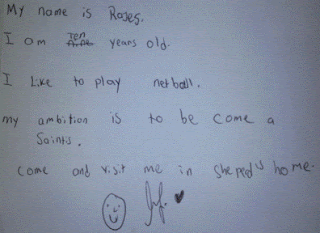 My name is Roses.
I am Ten years old.
I Like to play netball.
my ambition is to be come a
Saints.
come and visit me in home.